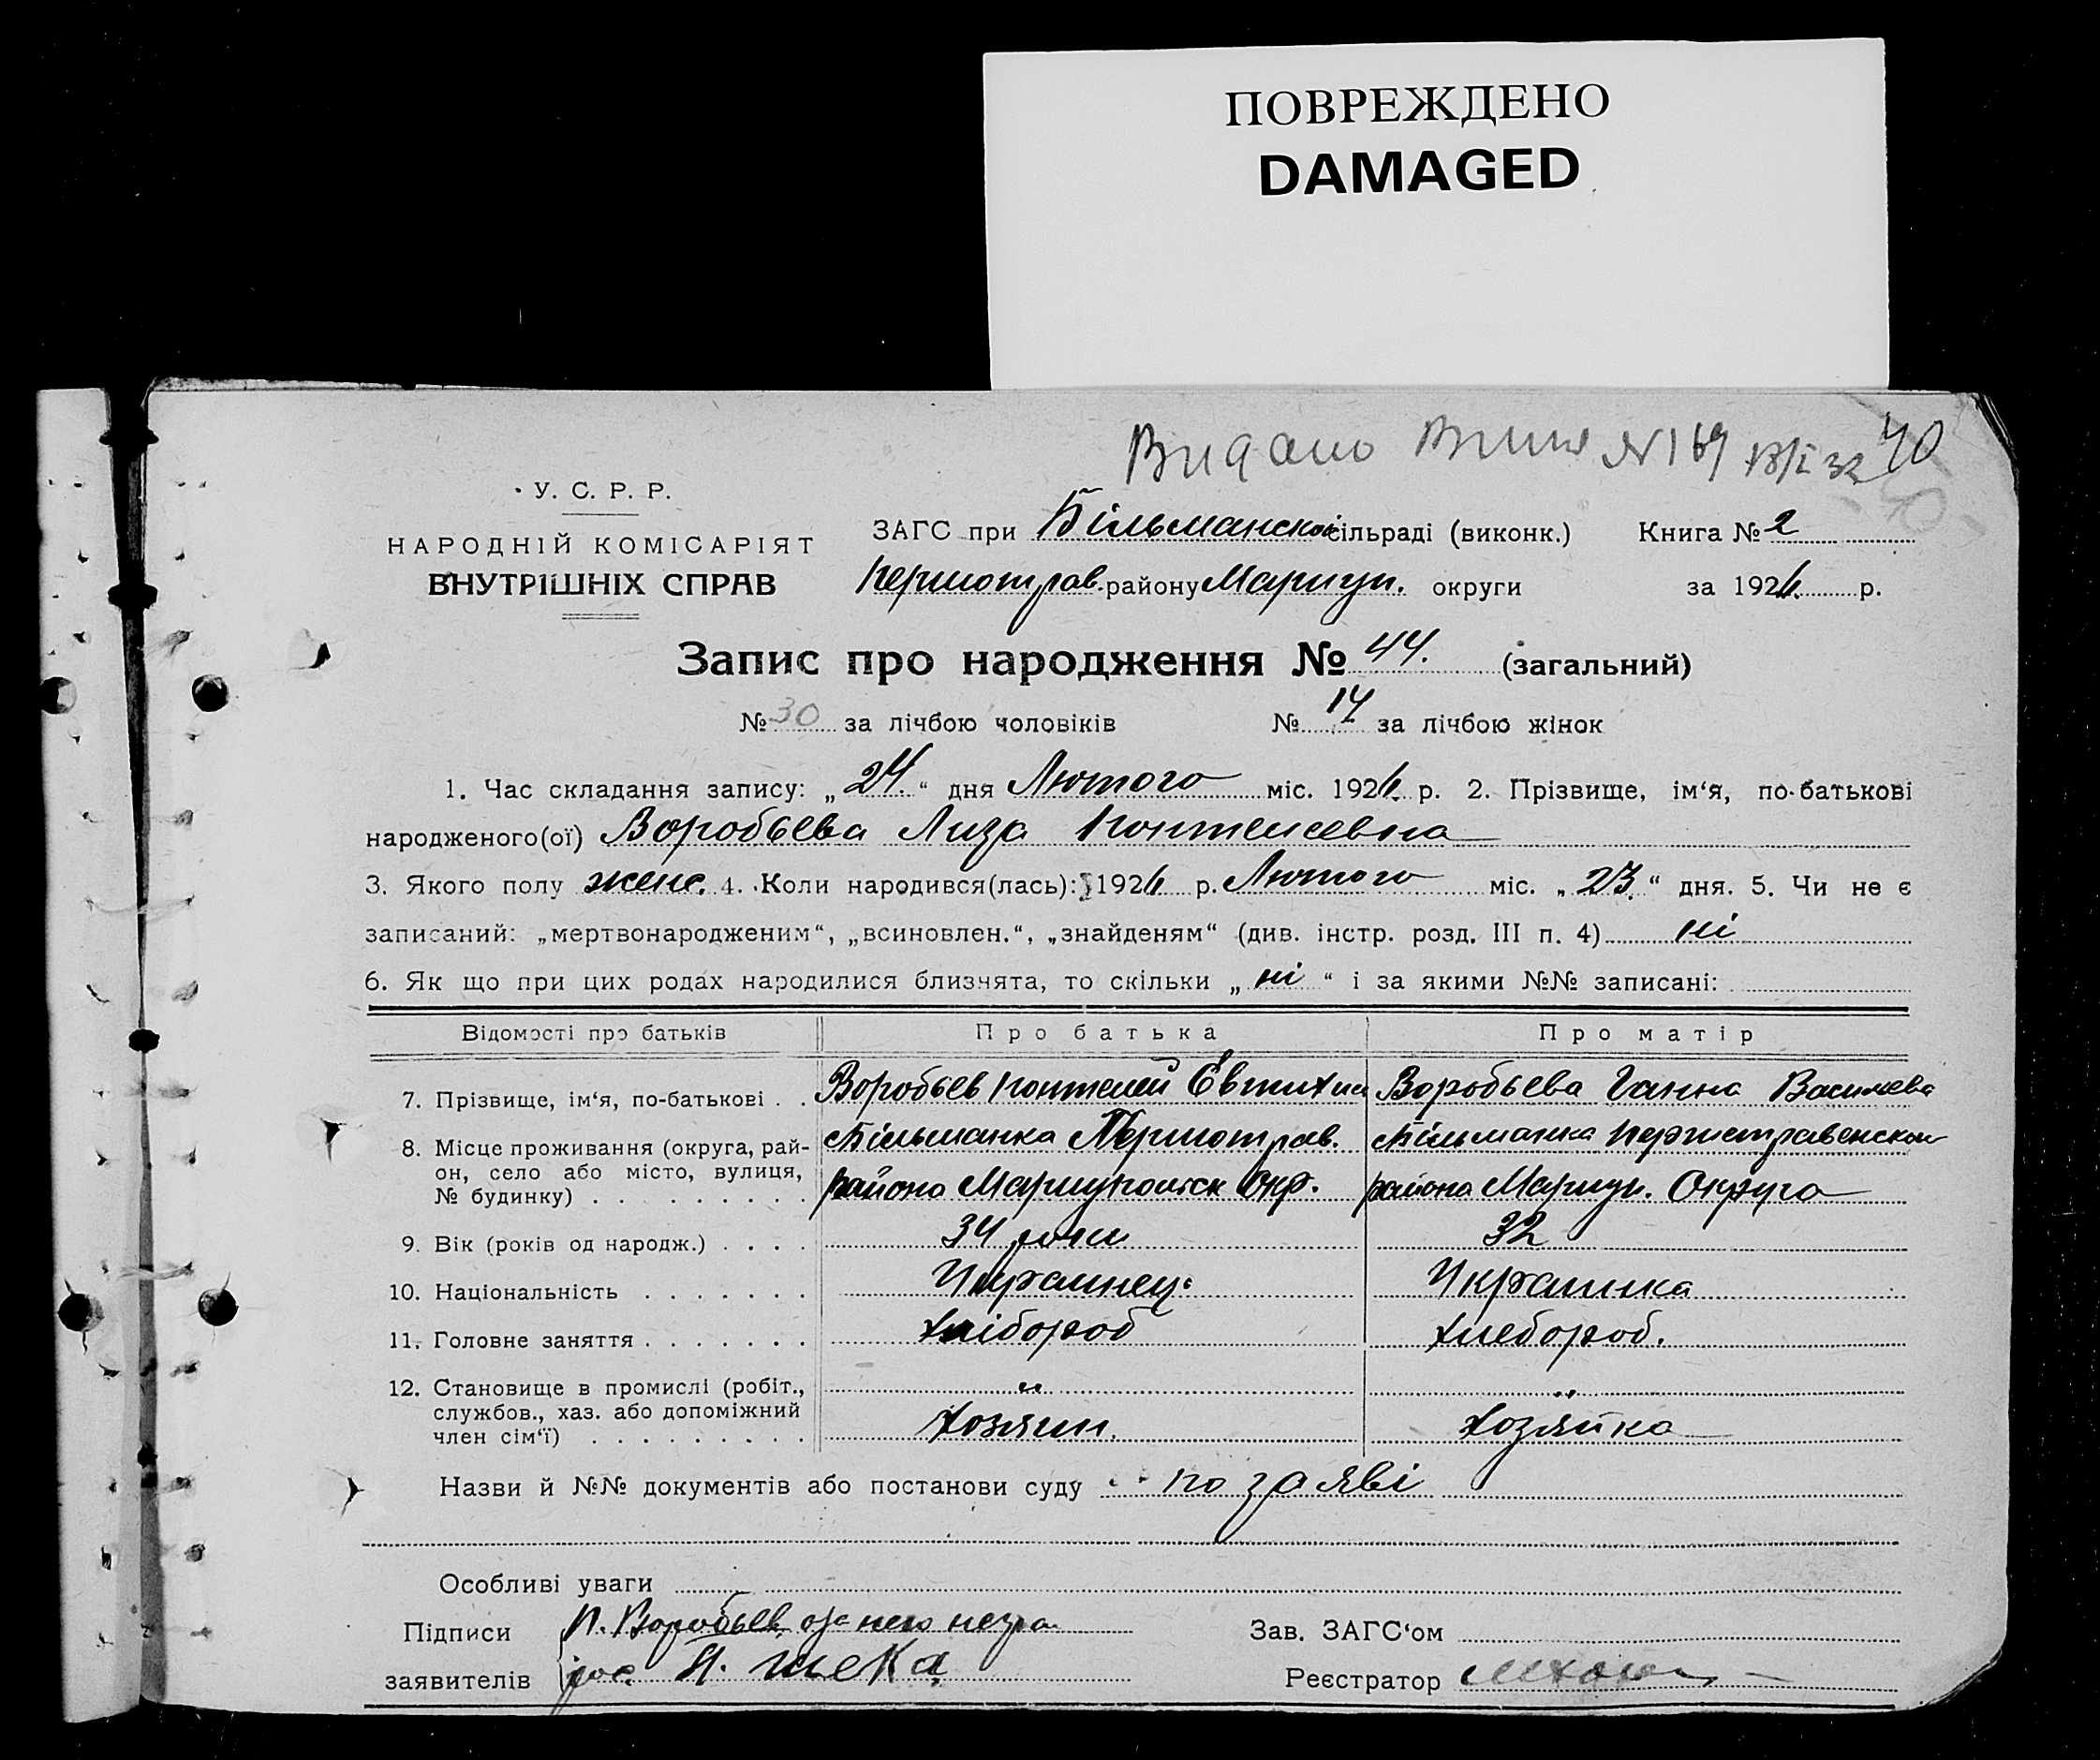 ПОВРЕЖДЕНО
DAMAGED
Видано №169 18/I 32 40
У. С. Р. Р.
НАРОДНІЙ КОМІСАРІЯТ
ВНУТРІШНІХ СПРАВ
ЗАГС при Більманской сільраді (виконк.) Книга № 2
Першотрав. району Мариуп. округи за 1926. р.
Запис про народження № 44. (загальний)
№ 30 за лічбою чоловіків № 14 за лічбою жінок
1. Час складання запису: „24.“ дня Лютого міс. 1926. р. 2. Прізвище, ім‘я, по-батькові
народженого(ої) Воробьева Лиза Понтелеевна
3. Якого полу женс. 4. Коли народився(лась): 1926 р. Лютого міс. „23.“ дня. 5. Чи не є
записаний: „мертвонародженим“, „всиновлен.“, „знайденям“ (див. інстр. розд. III п. 4) ні
6. Як що при цих родах народилися близнята, то скільки „ні“ і за якими №№ записані:
Відомості про батьків Про батька Про матір
7. Прізвище, ім‘я, по-батькові . . Воробьев Понтелей Евтихии Воробьева Ганна Василева
8. Місце проживання (округа, рай- Більманка Першотрав. Більманка Першетравенской
он, село або місто, вулиця,
№ будинку) . . . . . . . . . района Мариупольск Окр. района Мариуп. Округа
9. Вік (років од народж.) . . . . 34 роки 32
10. Національність . . . . . . . Украинец. Украинка
11. Головне заняття . . . . . . . Хлібороб Хлебороб.
12. Становище в промислі (робіт., „ „
службов., хаз. або допоміжний
член сім‘ї) . . . . . . . . . Хозяин. Хозяйка
Назви й №№ документів або постанови суду по заяві
Особливі уваги
Підписи П. Воробьев, за него негра Зав. ЗАГС‘ом
заявителів рос. Реєстратор